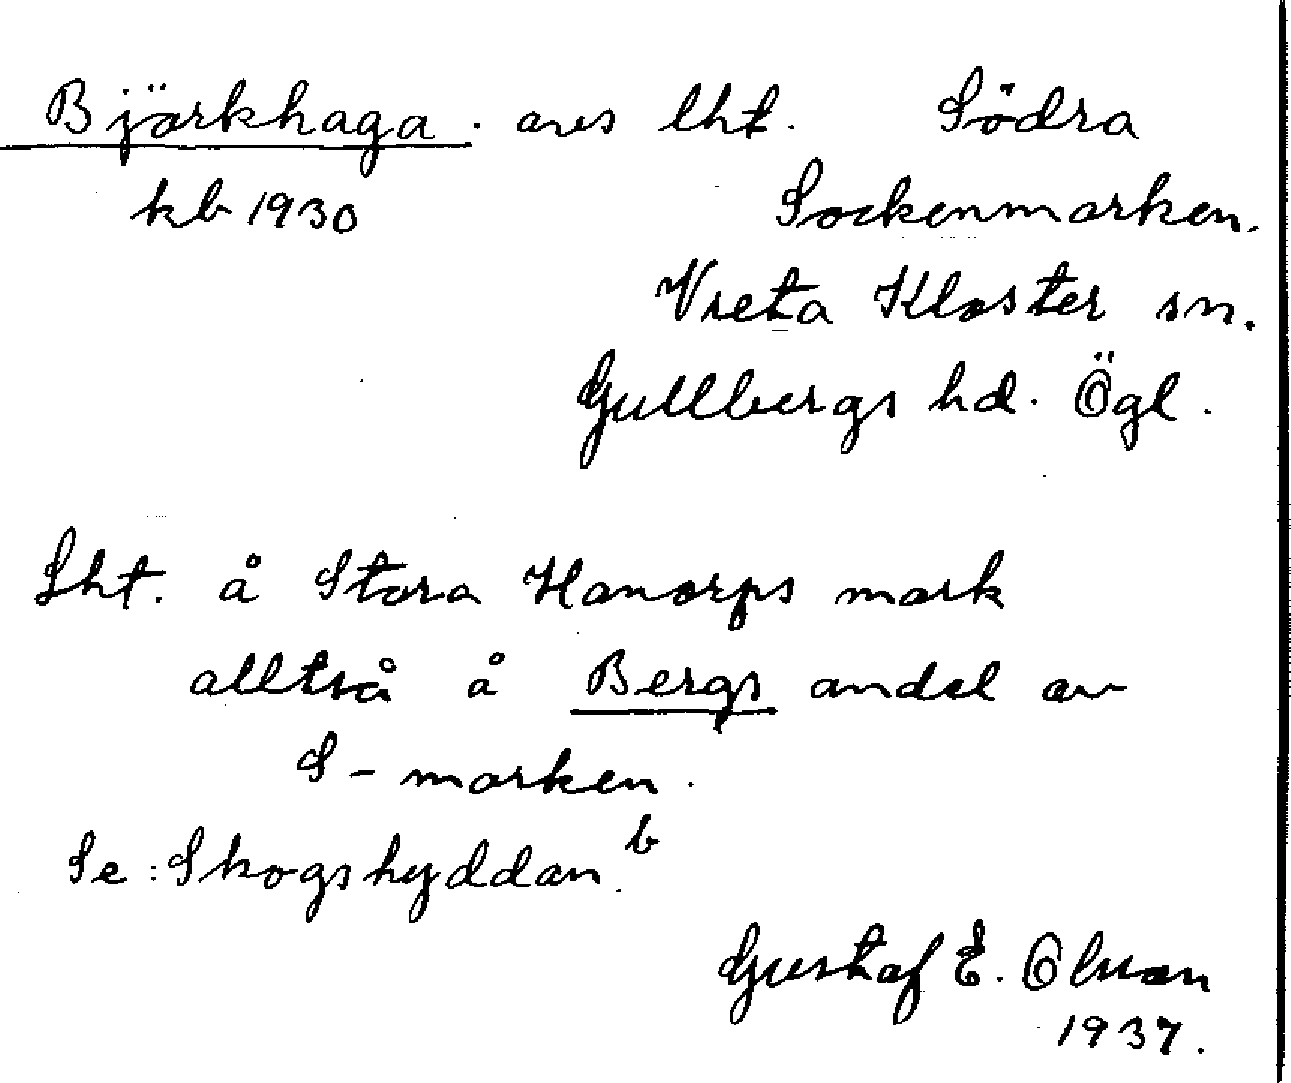 Björkhaga. avs lht. Södra
kb 1930 Sockenmarken.
Vreta Kloster sn.
Gullbergs hd. Ögl.
Lht. å Stora Hanorps mark
alltså å Bergs andel av
S-marken.
Se: Skogshyddan b
Gustaf E. Olsson
1937.